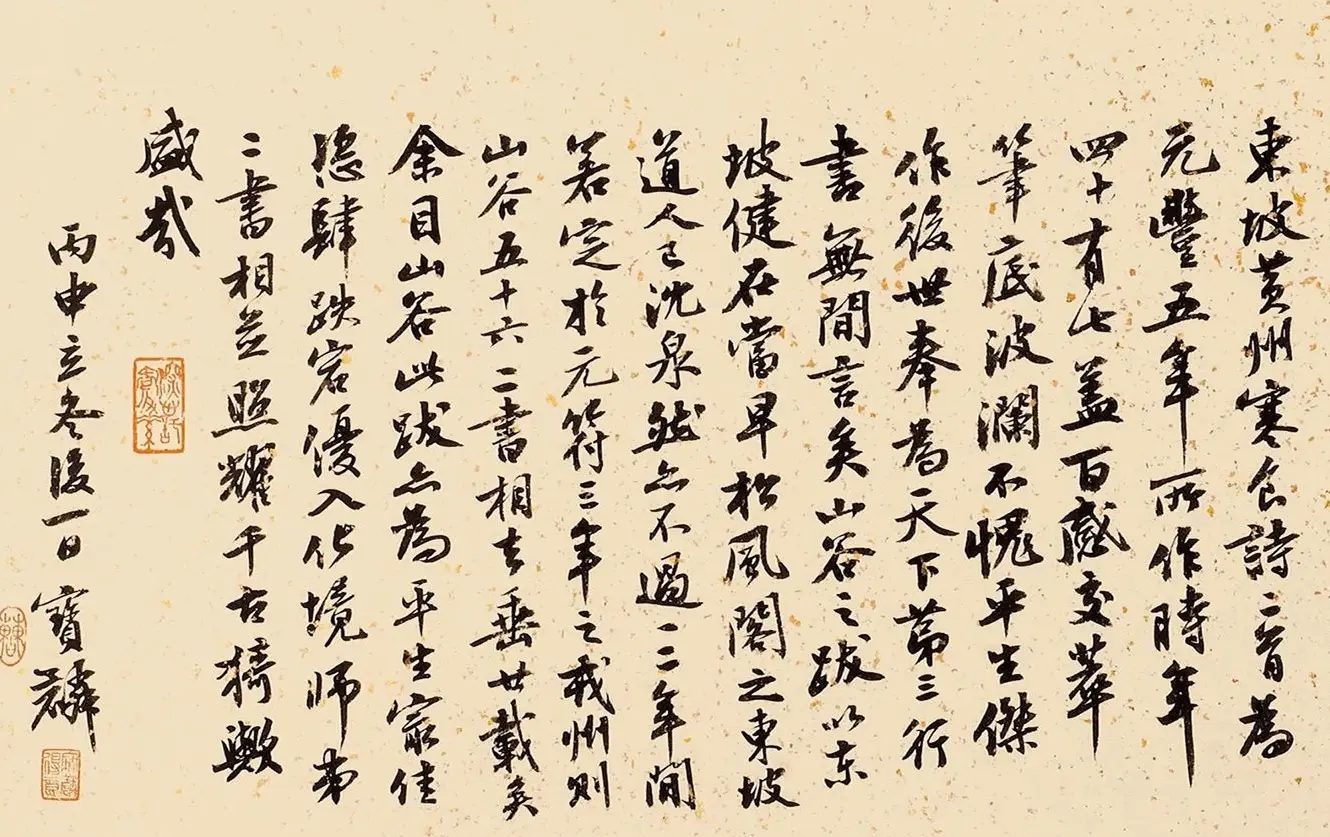 東坡黄州寒食詩二首為
元豐五年所作時年
四十有七蓋百感交萃
筆底波瀾不愧平生傑
作後世奉為天下第三行
書無間言矣山谷之跋以東
坡健在當早松風閣之東坡
道人已沈泉然亦不過一二年間
若定於元符三年之戎州則
山谷五十六二書相去垂廿載矣
余目山谷此跋亦為平生最佳
恣肆跌宕優入化境師弟
二書相並照耀千古猗歟
盛哉
丙申立冬後一日寶麟